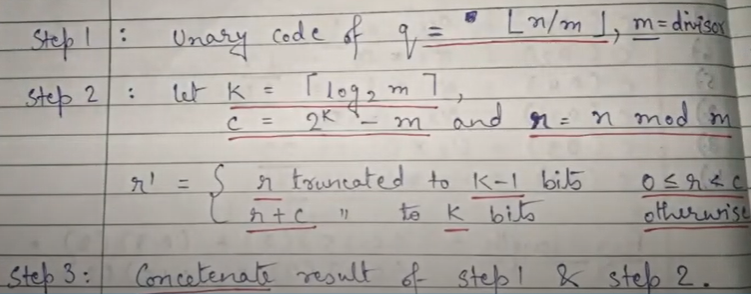 Step 1 : Unary code of q = ⌊n/m⌋, m = divisor
Step 2 : let K = ⌈log₂ m⌉,
c = 2ᴷ - m and r = n mod m
r' = { r truncated to K-1 bits 0 ≤ r < c
r + c " to K bits otherwise
Step 3 : Concetenate result of step 1 & step 2.